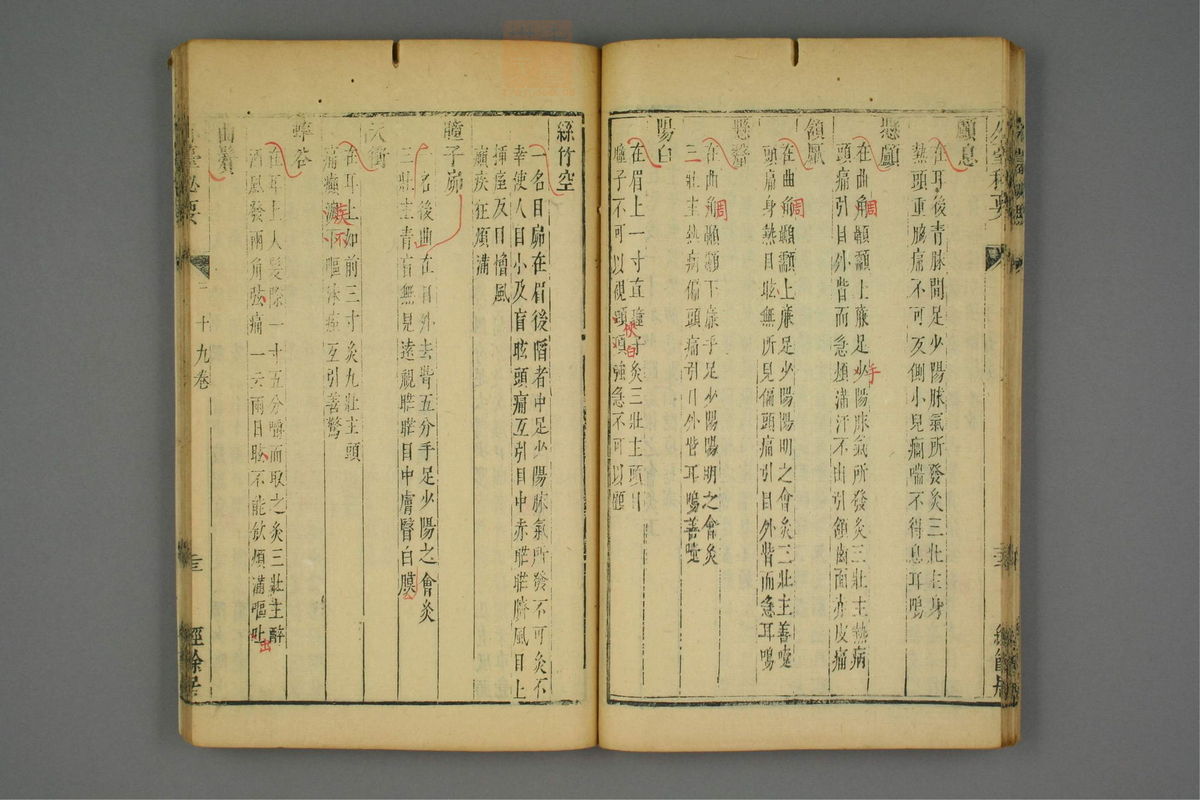 顱息
在耳後青脉間足少陽脉氣所發灸三壯主身
熱頭重脇痛不可反側小兒癇喘不得息耳鳴
懸顱
在曲角顳顬上廉足少陽脉氣所發灸三壯主熱病
頭痛引目外眥而急煩滿汗不出引頷齒面赤皮痛
頷厭
在曲角顳顬上廉足少陽陽明之會灸三壯主善嚏
頭痛身熱目眩無所見偏頭痛引目外眥而急耳鳴
懸釐
在曲角顳顬下廉手足少陽陽明之會灸
三壯主熱病偏頭痛引目外眥耳鳴善嚏
陽白
在眉上一寸直瞳子灸三壯主頭目
瞳子不可以視頭項強急不可以顧
絲竹空
一名目窌在眉後陷者中足少陽脉氣所發不可灸不
幸使人目小及盲眩頭痛互引目中赤䀮䀮臍風目上
插痙反目憎風
癲疾狂煩滿
瞳子窌
一名後曲在目外去眥五分手足少陽之會灸
三壯主青盲無見遠視䀮䀮目中膚瞖白膜
天衝
在耳上如前三寸灸九壯主頭
痛癲瘲下嘔沫瘈互引善驚
疾不
率谷
在耳上人髮際一寸五分嚼而取之灸三壯主醉
酒風發兩角眩痛一云兩目眩不能飲煩滿嘔吐
曲鬢
臺秘要
三十九卷
三
經餘居
周
周
周
手
出